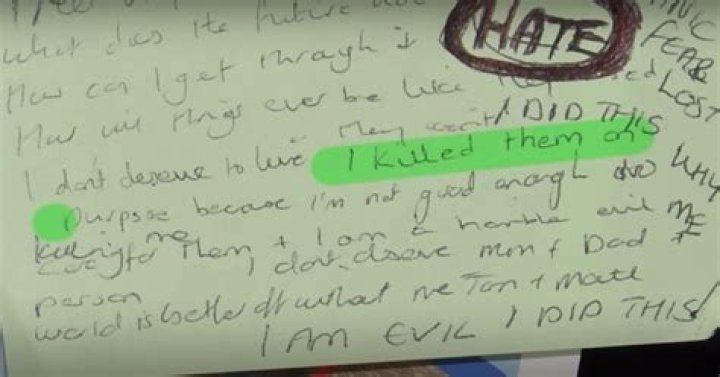 what does the future
HATE
PANIC
FEAR
LOST
How can I get through it
How will things ever be like they
They won't I DID THIS
I dont deserve to live I killed them on
purpose because I'm not good enough WHY
killing me
care for them & I am a horrible evil ME
person I dont deserve mum & Dad &
world is better off without me Tom & Matt
I AM EVIL I DID THIS!